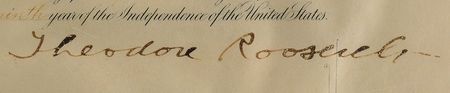 ninth year of the Independence of the United States.
Theodore Roosevelt